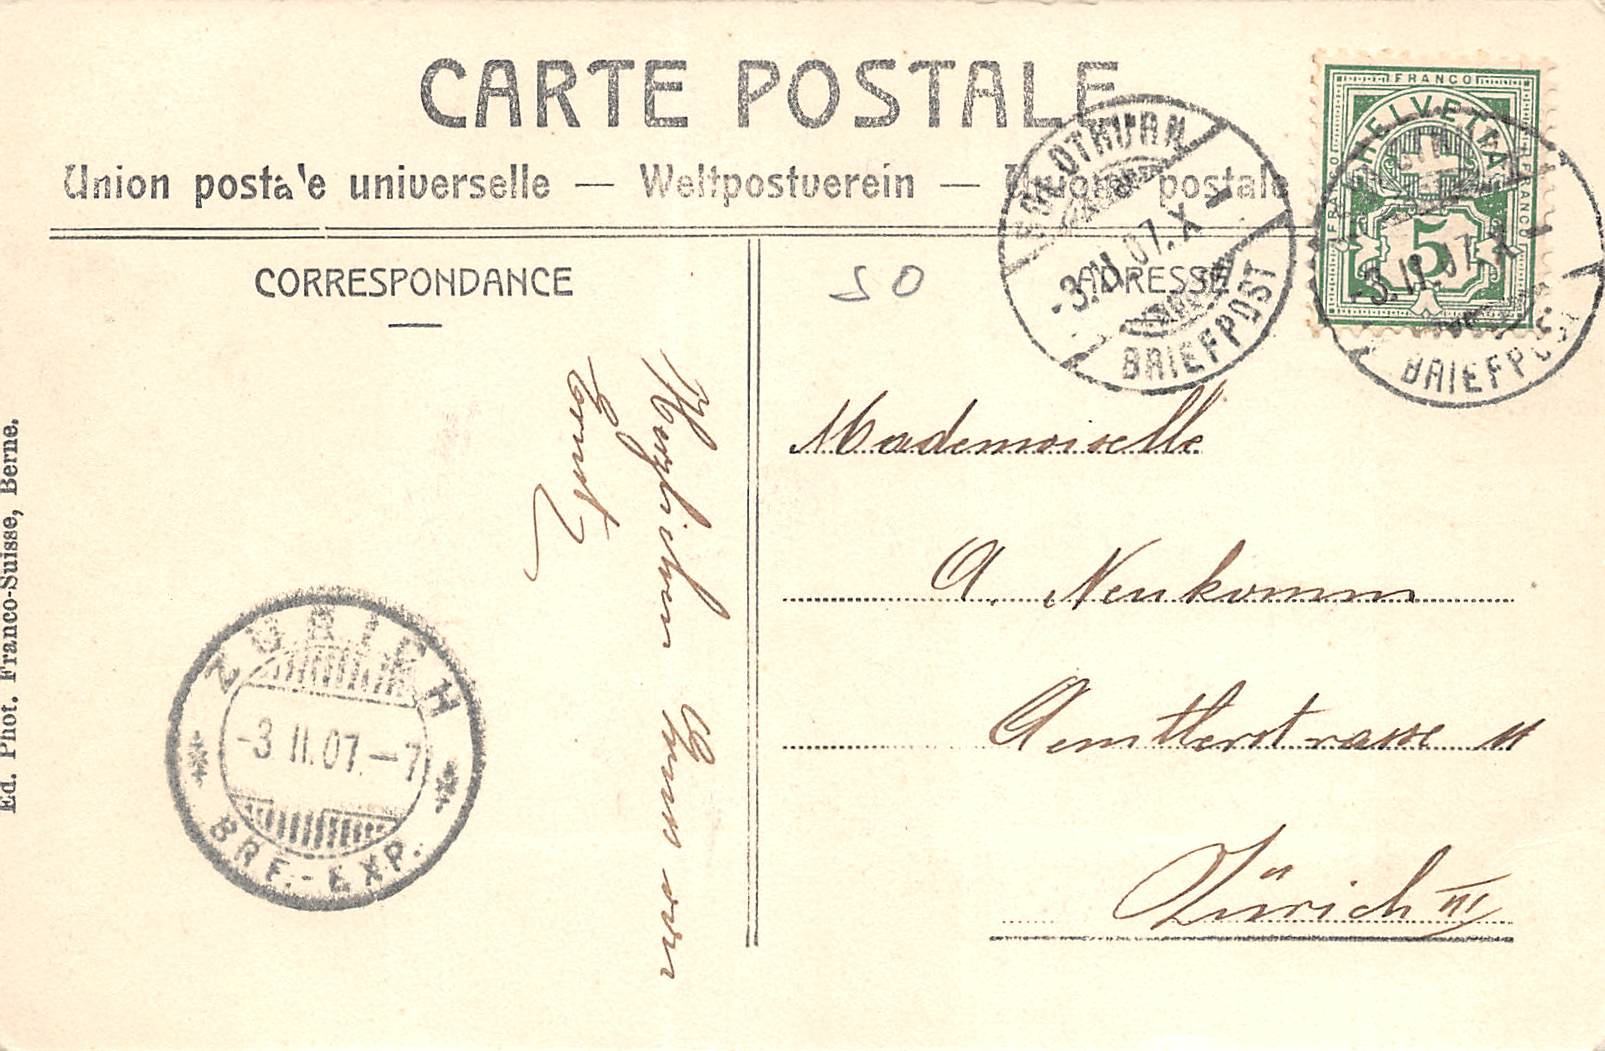 CARTE POSTALE
Union postale universelle — Weltpostverein — Unione postale
CORRESPONDANCE
ADRESSE
50
FRANCO
HELVETIA
FRANCO
FRANCO
5
SOLOTHURN
-3.II.07.X
BRIEFPOST
-3.II.07.X
BRIEFPOST
Mademoiselle
A. Neukomm
Aemtlerstrasse 11
Zürich III
Herzlichen Gruss von
Ernst
ZÜRICH
-3 II.07.-7
BRF.-EXP.
Ed. Phot. Franco-Suisse, Berne.